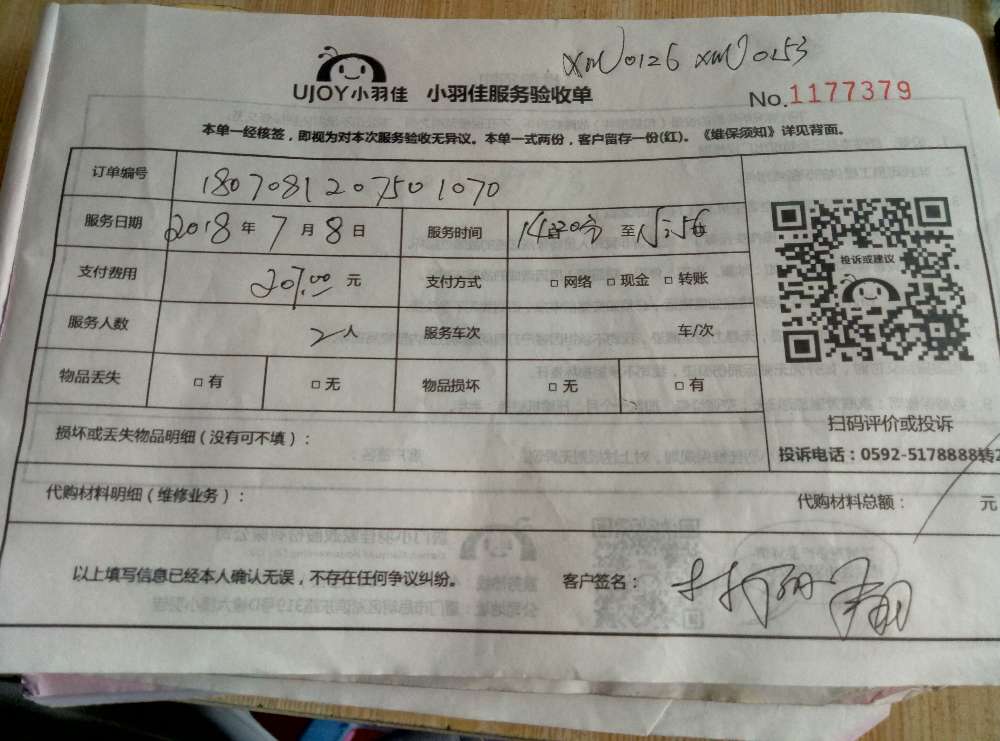 XMU0126 XMU0153
UJOY小羽佳 小羽佳服务验收单
No.1177379
本单一经核签，即视为对本次服务验收无异议。本单一式两份，客户留存一份(红)。《维保须知》详见背面。
订单编号 180708120750 1070
服务日期 2018 年 7 月 8 日 服务时间 14点20分 至
支付费用 207.00 元 支付方式 □ 网络 □ 现金 □ 转账
投诉或建议
服务人数 2 人 服务车次 车/次
物品丢失 □ 有 □ 无 物品损坏 □ 无 □ 有
扫码评价或投诉
损坏或丢失物品明细（没有可不填）：
投诉电话：0592-5178888转2
代购材料明细（维修业务）：
代购材料总额： 元
以上填写信息已经本人确认无误，不存在任何争议纠纷。 客户签名：